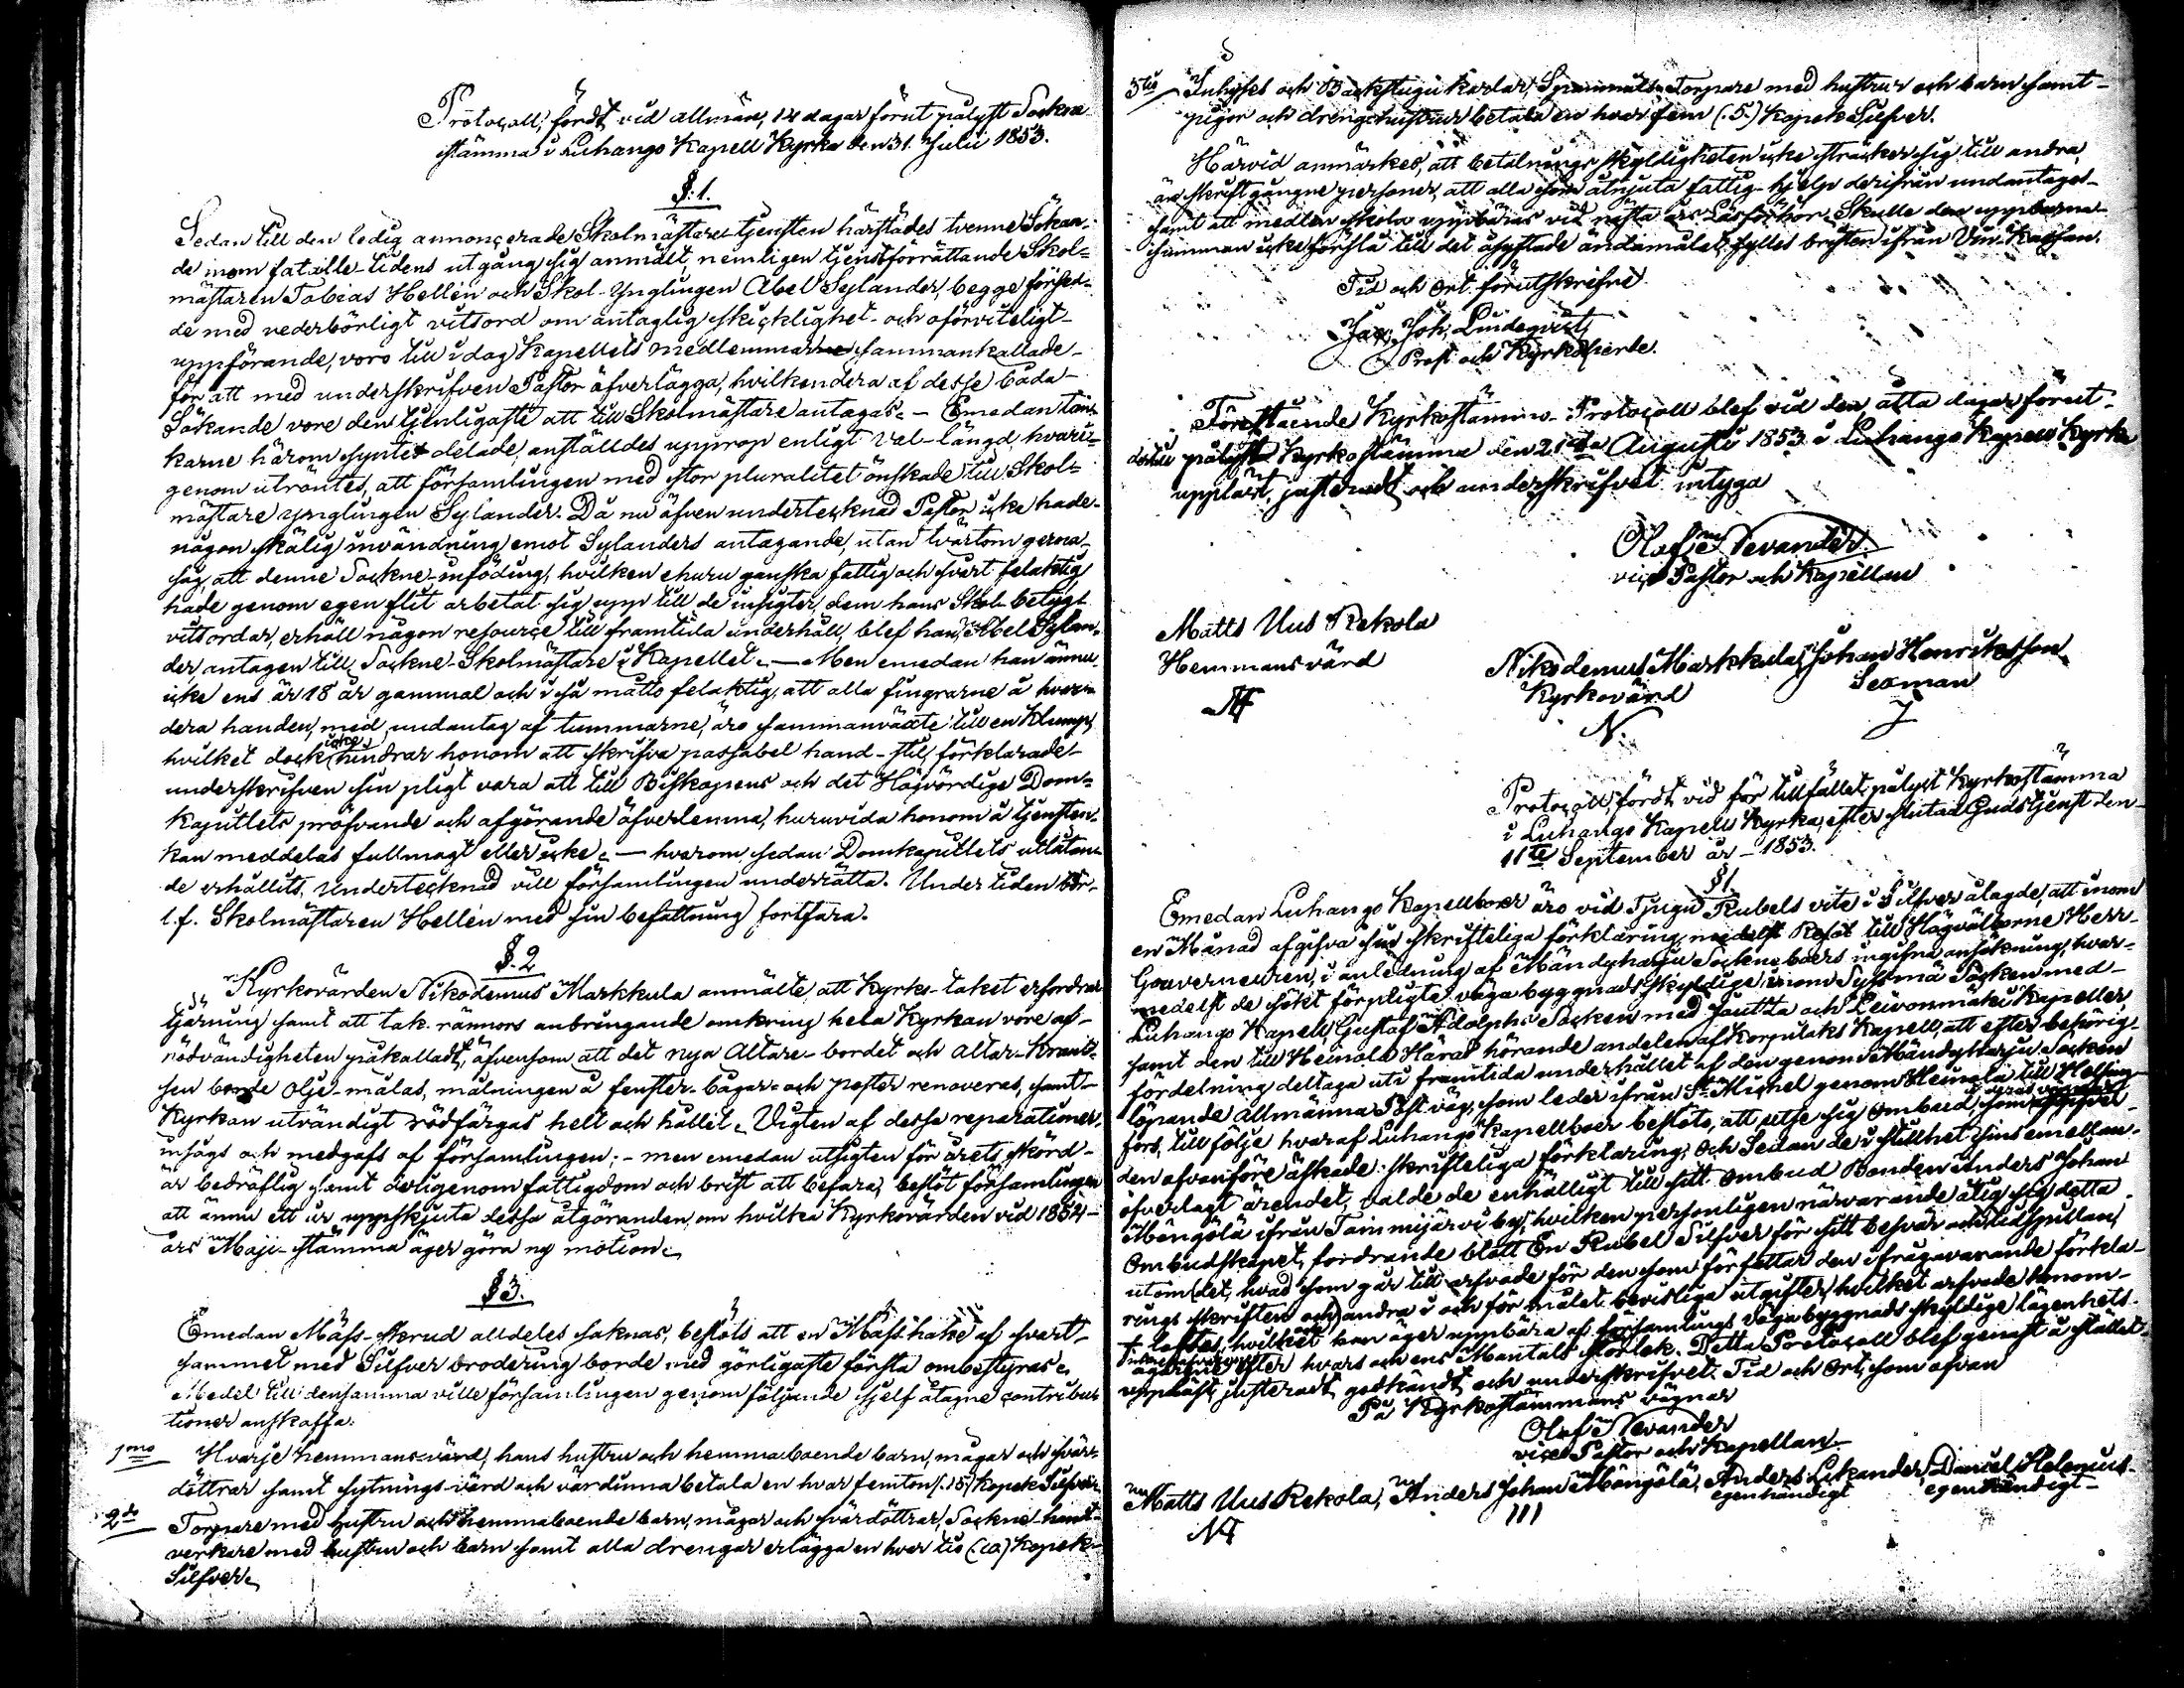 Protocoll, fördt vid allmän, 14 dagar förut pålyst Sockne
stämma i Luhango Kapell Kyrka den 31. Julii 1853.
§. 1.
Sedan till den ledig annoncerade Skolmästare-tjensten härstädes tvenne Sökan-
de inom fatalle-tidens utgång sig anmält, nemligen tjenstförrättande Skol=
mästaren Tobias Hellén och Skol-Ynglingen Abel Sylander, begge försed-
de med vederbörligt vitsord om antaglig skicklighet- och oförviteligt-
uppförande, voro till i dag Kapellets medlemmar sammankallade-
för att med underskrifven Pastor öfverlägga, hvilkendera af desse båda-
Sökande vore den tjenligaste att till Skolmästare antagas. - Emedan tän-
karne härom syntes delade, anställdes upprop enligt val-längd, hvari=
genom utröntes, att församlingen med stor pluralitet önskade till Skol=
mästare ynglingen Sylander. Då nu äfven undertecknad Pastor icke hade-
någon skälig invändning emot Sylanders antagande, utan tvärtom gerna-
såg, att denne Sockne-inföding, hvilken ehuru ganska fattig och svårt felaktig
hade genom egen flit arbetat sig upp till de insigter, dem hans Skol-betyg
vitsordar, erhåll någon resource till framtida underhåll, blef han, Abel Sylan-
der, antagen till Sockne-Skolmästare i Kapellet. - Men emedan han ännu
icke ens är 18 år gammal och i så måtto felaktig, att alla fingrarne å hvar-
dera handen, med undantag af tummarne, äro sammanväxte till en klump,
hvilket dock icke hindrar honom att skrifva passabel hand-stil, förklarade-
underskrifven sin pligt vara att till Biskopens och det Högvördige Dom-
Kapitlets pröfvande och afgörande öfverlemna, huruvida honom å tjensten
kan meddelas fullmagt eller icke. - hvarom sedan Domkapitlets utlåtan-
de erhållits, Undertecknad vill församlingen underrätta. Under tiden bör-
t.f. Skolmästaren Hellén med sin befattning fortfara.
§. 2
Kyrkovärden Nikodemus Markkula anmälte, att Kyrko-taket erfordrar
tjärning samt att tak-rännors anbringande omkring hela Kyrkan vore af-
nödvändigheten påkalladt, äfvensom att det nya Altare-bordet och Altar-Krant-
sen borde olje-målas, målningen å fenster-bågar- och poster renoveras, samt-
Kyrkan utvändigt rödfärgas helt och hållit. Vigten af dessa reparationer,
insågs och medgafs af församlingen; - men emedan utsigten för årets skörd-
är bedräflig samt derigenom fattigdom och brist att befara, beslöt församlingen
att ännu ett år uppskjuta dessa åtgöranden, om hvilka Kyrkovärden vid 1854-
års Maji-stämma äger göra ny motion.
§ 3.
Emedan Mäss-skrud alldeles saknas, beslöts att en Mäss-hake af svart-
sammet med Silfver brodering borde med görligaste första ombestyras.
Medel till densamma ville församlingen genom följande sjelf åtagne contribu-
tioner anskaffa:
1mo Hvarje hemmans-värd, hans hustru och hemmaboende barn, mågar och svär-
döttrar samt sytnings-värd och värdinna betala en hvar femton (15) Kopek Silfver.
2do Torpare med hustru och hemmaboende barn, mågar och svärdöttrar, Sockne-hand-
verkare med hustru och barn samt alla drengar erlägga en hvar tio (10) Kopek-
Silfver.
3tio Inhyses och Backstugu karlar, Spannmåls-Torpare med hustrur och barn samt-
pigor och drengehustrur betala en hvar fem (5.) Kopek Silfver.
Härvid anmärkes, att betalnings skyldigheten icke sträcker sig till andra,
än skriftgångne personer, att alla som åtnjuta fattig-hjelp derifrån undantages-
samt att medlen skola uppbäras vid nästa års Läsförhör. Skulle den uppburna-
summan icke förslå till det åsyftade ändamålet, fylles bristen ifrån Vin-Kassan.
Tid och ort förutskrifne
Jac. Joh. Lindeqvist,
Prost och Kyrkoherde.
Förestående Kyrkostämmo-Protocoll blef vid den, åtta dagar förut-
pålyste Kyrkostämma den 21sta Augusti 1853 i Luhango Kapell Kyrka
uppläst, justeradt och underskrifvet intyga
Olof Nevander
vice Pastor och Kapellan
Matts Uus Rekola
Hemmansvärd
Nikodemus Markkula, Johan Henriksson
Kyrkovärd Sexman
N. J
Protocoll, fördt vid för tillfället pålyst Kyrkostämma
i Luhango Kapell Kyrka, efter slutad Gudstjenst den
11te September år - 1853.
§ 1.
Emedan Luhango Kapellboer äro vid Tjugu Rubels vite i Silfver ålagde, att inom
en Månad afgifva sin skrifteliga förklaring, medelst Resol. till Högvälborne Herr-
Gouverneuren, i anledning af Mändyharju Sockneboers ingifna ansökning, hvar-
medelst de sökt förpligta väga byggnads skyldige inom Sysmä Socken med-
Luhango Kapell, Gustaf Adolphs Socken med Joutsa och Leivonmäki Kapeller
samt den till Heinola Härad hörande andelen af Korpilaks Kapell, att efter behörig-
fördelning deltaga uti framtida underhållet af den genom Mändyharju Socken
löpande allmänna Post väg, som leder ifrån S:t Michel genom Heinola till Helsing-
fors, till följe hvaraf Luhango Kapellboer beslöto, att utse sig Ombud, som
den ofvanföre äskade skrifteliga förklaring; Och Sedan de i stillhet sins emellan-
öfverlagt ärendet, valde de enhälligt till sitt Ombud Bonden Anders Johan
Mängölä ifrån Tammijärvi by, hvilken personligen närvarande åtog sig detta
Ombudskapet, fordrande blott En Rubel Silfver för sitt besvär och tidspillan,
utom det, hvad som går till arfvode för den som författar den ifrågavarande förkla-
rings skriften och andra i och för målet bevisliga utgifter, hvilket arfvode honom-
+ loftes, hvilket han äger uppbära af församlings väga byggnads skyldige lägenhets-
ägare efter hvars och ens Mantals storlek. Detta Protocoll blef genast å stället
uppläst, justeradt, godkändt och underskrifvet. Tid och Ort, som ofvan
På Kyrkostämmans vägnar
Olof Nevander
vice Pastor och Kapellan
Matts Uus Rekola, Anders Johan Mängölä, Anders Lekander, Daniel Helenius
egenhändigt egenhändigt